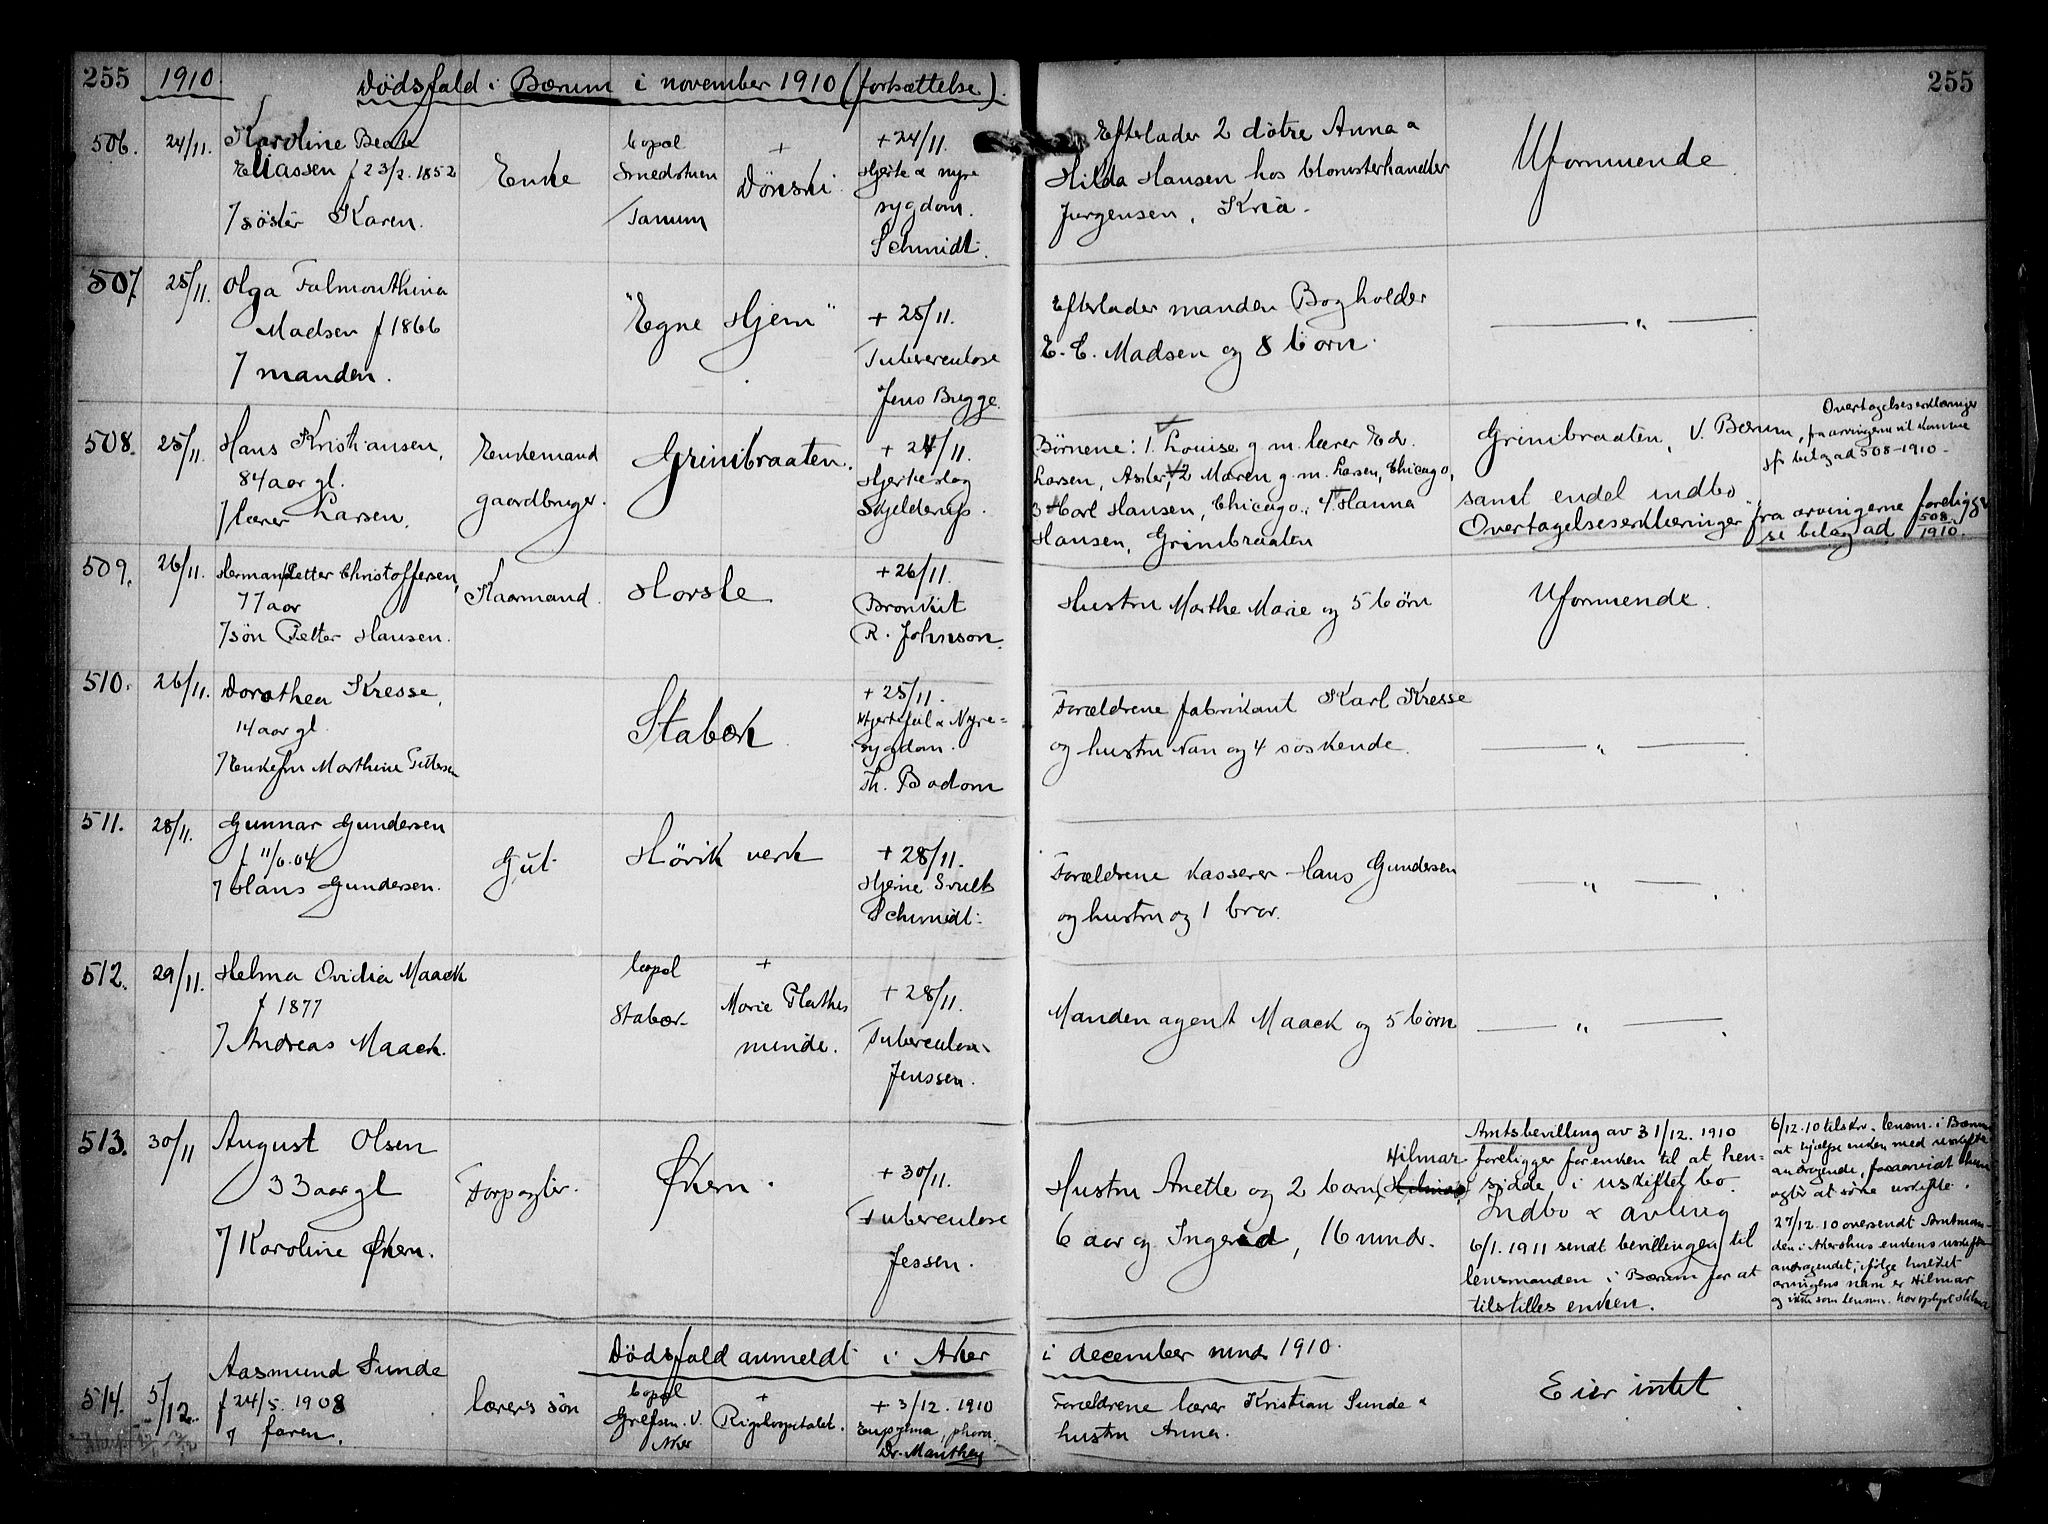 255 1910 Dödsfald i Bærum i november 1910 (fortsættelse). 255
506. 24/11. Karoline Beate
Eliassen f 23/2. 1852
7 søster Karen.
Enke
bopæl
Smedstuen
Tanum
+
Dönski
+ 24/11.
Hjerte & nyre
sygdom.
Schmidt.
Efterlader 2 døtre Anna &
Hilda Hansen hos blomsterhandler
Jurgensen, Kria.
Uformuende
507. 25/11. Olga Falmonthina
Madsen f 1866
7 manden.
"Egne Hjem"
+ 25/11.
Tuberculose
Jens Bugge.
Efterlader manden Bogholder
E. C. Madsen og 8 børn.
— " —
508. 25/11. Hans Kristiansen,
84 aar gl.
7 lærer Larsen.
Enkemand
gaardbruger.
Grinibraaten.
+ 24/11.
Hjerteslag
Skjelderup.
Børnene: 1. Louise g. m. lærer Edv.
Larsen, Asker, 2 Maren g. m. Larsen, Chicago,
3 Karl Hansen, Chicago., 4. Hanna
Hansen, Grinibraaten
Grinibraaten, V. Bærum,
samt endel indbo.
Overtagelseserklæringer fra arvingerne foreligger
se bilag ad 508/1910.
Overtagelseserklæringer
fra arvingerne vil komme
jfr bilag ad 508-1910.
509. 26/11. Herman Petter Christoffersen,
77 aar
7 søn Petter Hansen.
Kaarmand.
Horsle
+ 26/11.
Bronkit
R. Johnson.
Hustru Marthe Marie og 5 børn
Uformuende.
510. 26/11. Dorothea Kresse,
14 aar gl.
7 Enkefru Marthine Pettersen
Stabæk
+ 25/11.
Hjertefeil & Nyre=
sygdom.
Th. Bodom
Forældrene fabrikant Karl Kresse
og hustru Nan og 4 søskende.
— " —
511. 28/11. Gunnar Gundersen
f 11/6.04
7 Hans Gundersen.
Gut.
Hövik verk
+ 28/11.
Hjerne Svulst
Schmidt.
Forældrene kasserer Hans Gundersen
og hustru og 1 bror.
— " —
512. 29/11. Helma Ovidia Maack
f 1877
7 Andreas Maack.
bopæl
Stabæk
+
Marie Plathes
minde.
+ 28/11.
Tuberculose
Jenssen.
Manden agent Maack og 5 børn
— " —
513. 30/11 August Olsen
33 aar gl
7 Karoline Økern.
Forpagter.
Økern.
+ 30/11.
Tuberculose
Jessen.
Hilmar
Hustru Anette og 2 børn,
6 aar og Ingerid, 16 mndr.
Amtsbevilling av 31/12. 1910
foreligger for enken til at hen=
sidde i uskiftet bo.
Indbo & avling
6/1. 1911 sendt bevillingen til
lensmanden i Bærum for at
tilstilles enken.
6/12.10 tilskr. lensm. i Bærum
at hjælpe enken med uskifte
andragende, forsaavidt hun
agter at søke uskifte.
27/12.10 oversendt Amtman-
den i Akershus enkens uskifte
andragendet; ifølge hvilket
arvingens navn er Hilmar
og ikke som lensm. har oplyst Helmar
Dödsfald anmeldt i Aker i december mnd 1910.
514. 5/12. Aasmund Sunde
f 24/5. 1908
7 faren.
lærers søn
bopæl
Grefsen. V.
Aker
+
Rigshospitalet.
+ 3/12. 1910
Empyema, phora.
Dr. Manthey
Forældrene lærer Kristian Sunde &
hustru Anna.
Eier intet